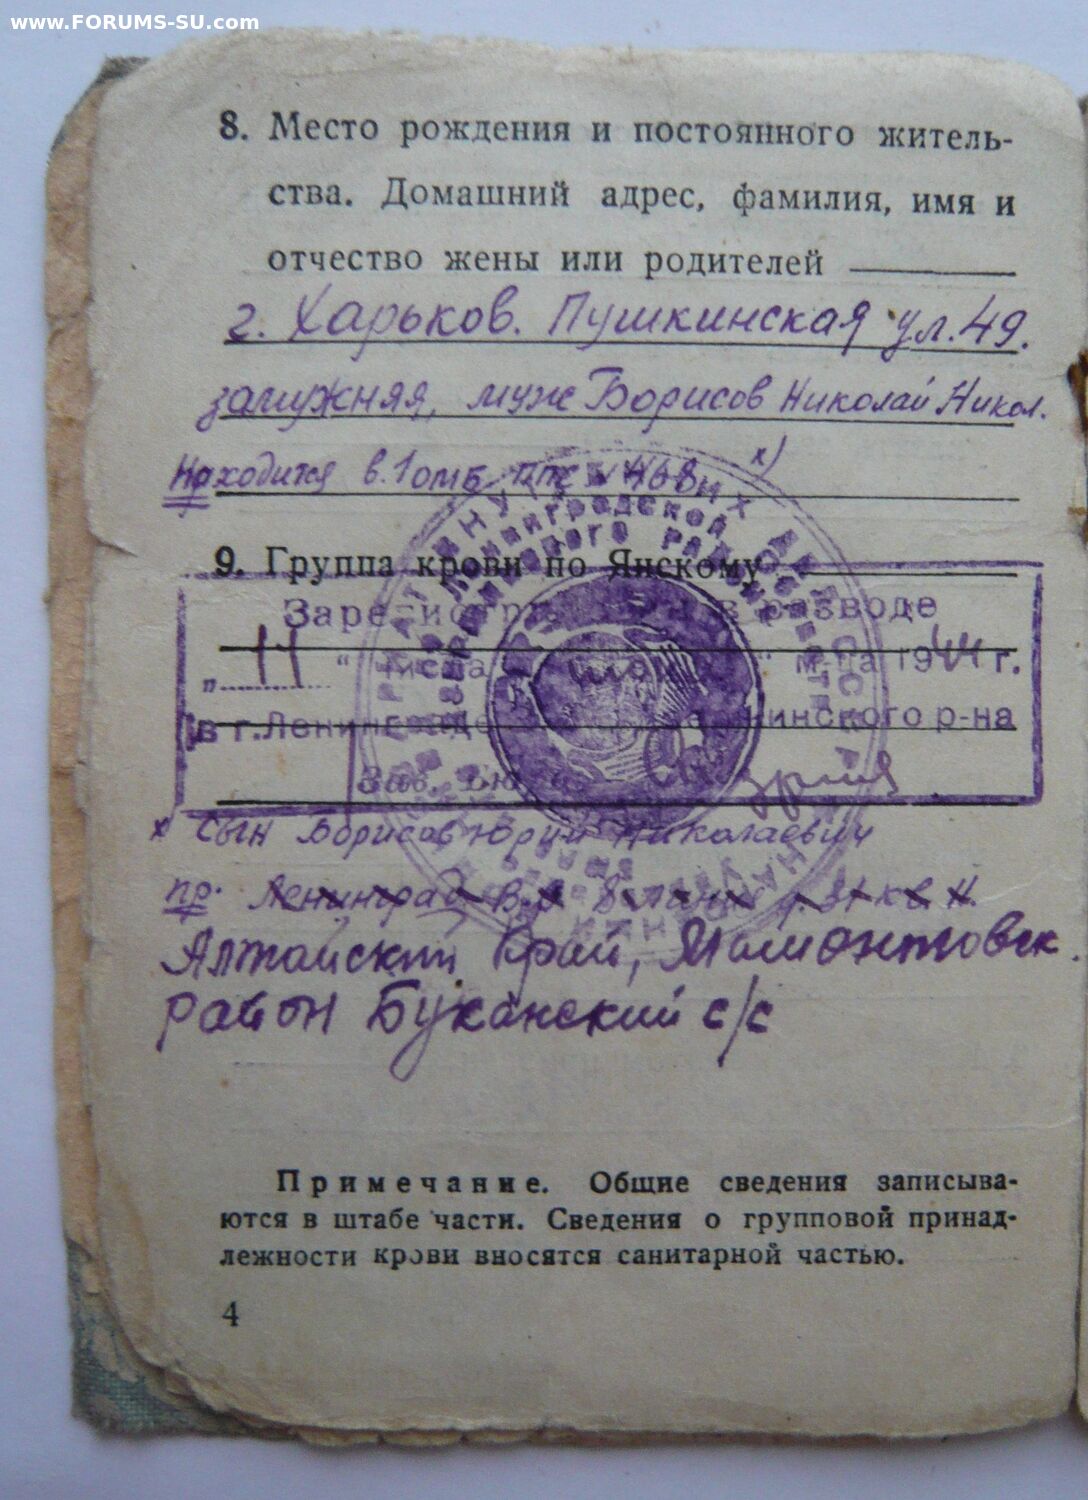 www.FORUMS-SU.com
8. Место рождения и постоянного житель-
ства. Домашний адрес, фамилия, имя и
отчество жены или родителей
г. Харьков. Пушкинская ул. 49.
замужняя, муж Борисов Николай Никол.
Находится в
x)
9. Группа крови по Янскому
в разводе
„11“ числа м-ца 1944 г.
в г. Ленинграде нинского р-на
Зав.
x Сын Борисов Юрий Николаевич
пр. Ленинград В.О.
Алтайский Край, Мамонтовск.
район Буканский с/с
Примечание. Общие сведения записыва-
ются в штабе части. Сведения о групповой принад-
лежности крови вносятся санитарной частью.
4